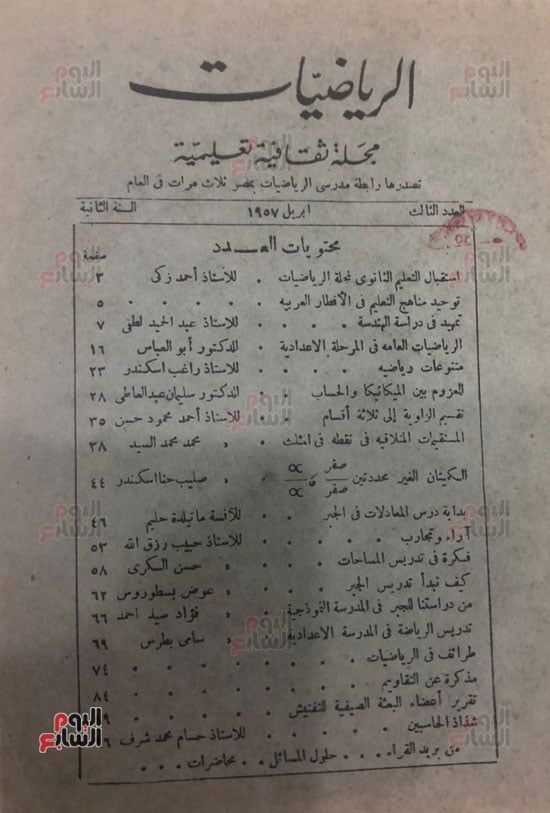 الرياضيّات
مجلة ثقافية تعليمية
تصدرها رابطة مدرسى الرياضيات بمصر ثلاث مرات فى العام
العدد الثالث ابريل ١٩٥٧ السنة الثانية
محتويات العـــدد
صفحة
استقبال التعليم الثانوى لمجلة الرياضيات . للاستاذ أحمد زكى ٣
توحيد مناهج التعليم فى الأقطار العربيه . . . . . ٥
تمهيد فى دراسة الهندسة . . . للاستاذ عبد الحميد لطفى ٧
الرياضيات العامه فى المرحلة الاعدادية . للدكتور أبو العباس ١٦
متنوعات رياضيه . . . . للاستاذ راغب اسكندر ٢٣
العزوم بين الميكانيكا والحساب . . للدكتور سليمان عبد العاطى ٢٨
تقسيم الزاوية إلى ثلاثة أقسام . . للاستاذ أحمد محمود حسن ٣٥
المستقيمات المتلاقيه فى نقطه فى المثلث . » محمد محمد السيد ٣٨
الكميتان الغير محددتين صفر/صفر ، ∝/∝ . » صليب حنا اسكندر ٤٤
بداية درس المعادلات فى الجبر . . للآنسة ماتيلدة حليم ٤٦
آراء وتجارب . . . . للاستاذ حبيب رزق الله ٥٣
فكرة فى تدريس المساحات . . » حسن السكرى ٥٨
كيف نبدأ تدريس الجبر . . » عوض بسطوروس ٦٢
من دراستنا للجبر فى المدرسة النموذجية . » فؤاد سيد احمد ٦٦
تدريس الرياضة فى المدرسة الاعدادية . » سامى بطرس ٦٩
طرائف فى الرياضيات . . . . . . ٧٤
مذكرة عن التقاويم . . . . . .
تقرير أعضاء البعثة الصيفية للتفتيش . . . . ٨٤
شذاذ الحاسبين . . . . للاستاذ حسام محمد شرف
من بريد القراء . . . حلول المسائل . . محاضرات . . .
اليوم السابع